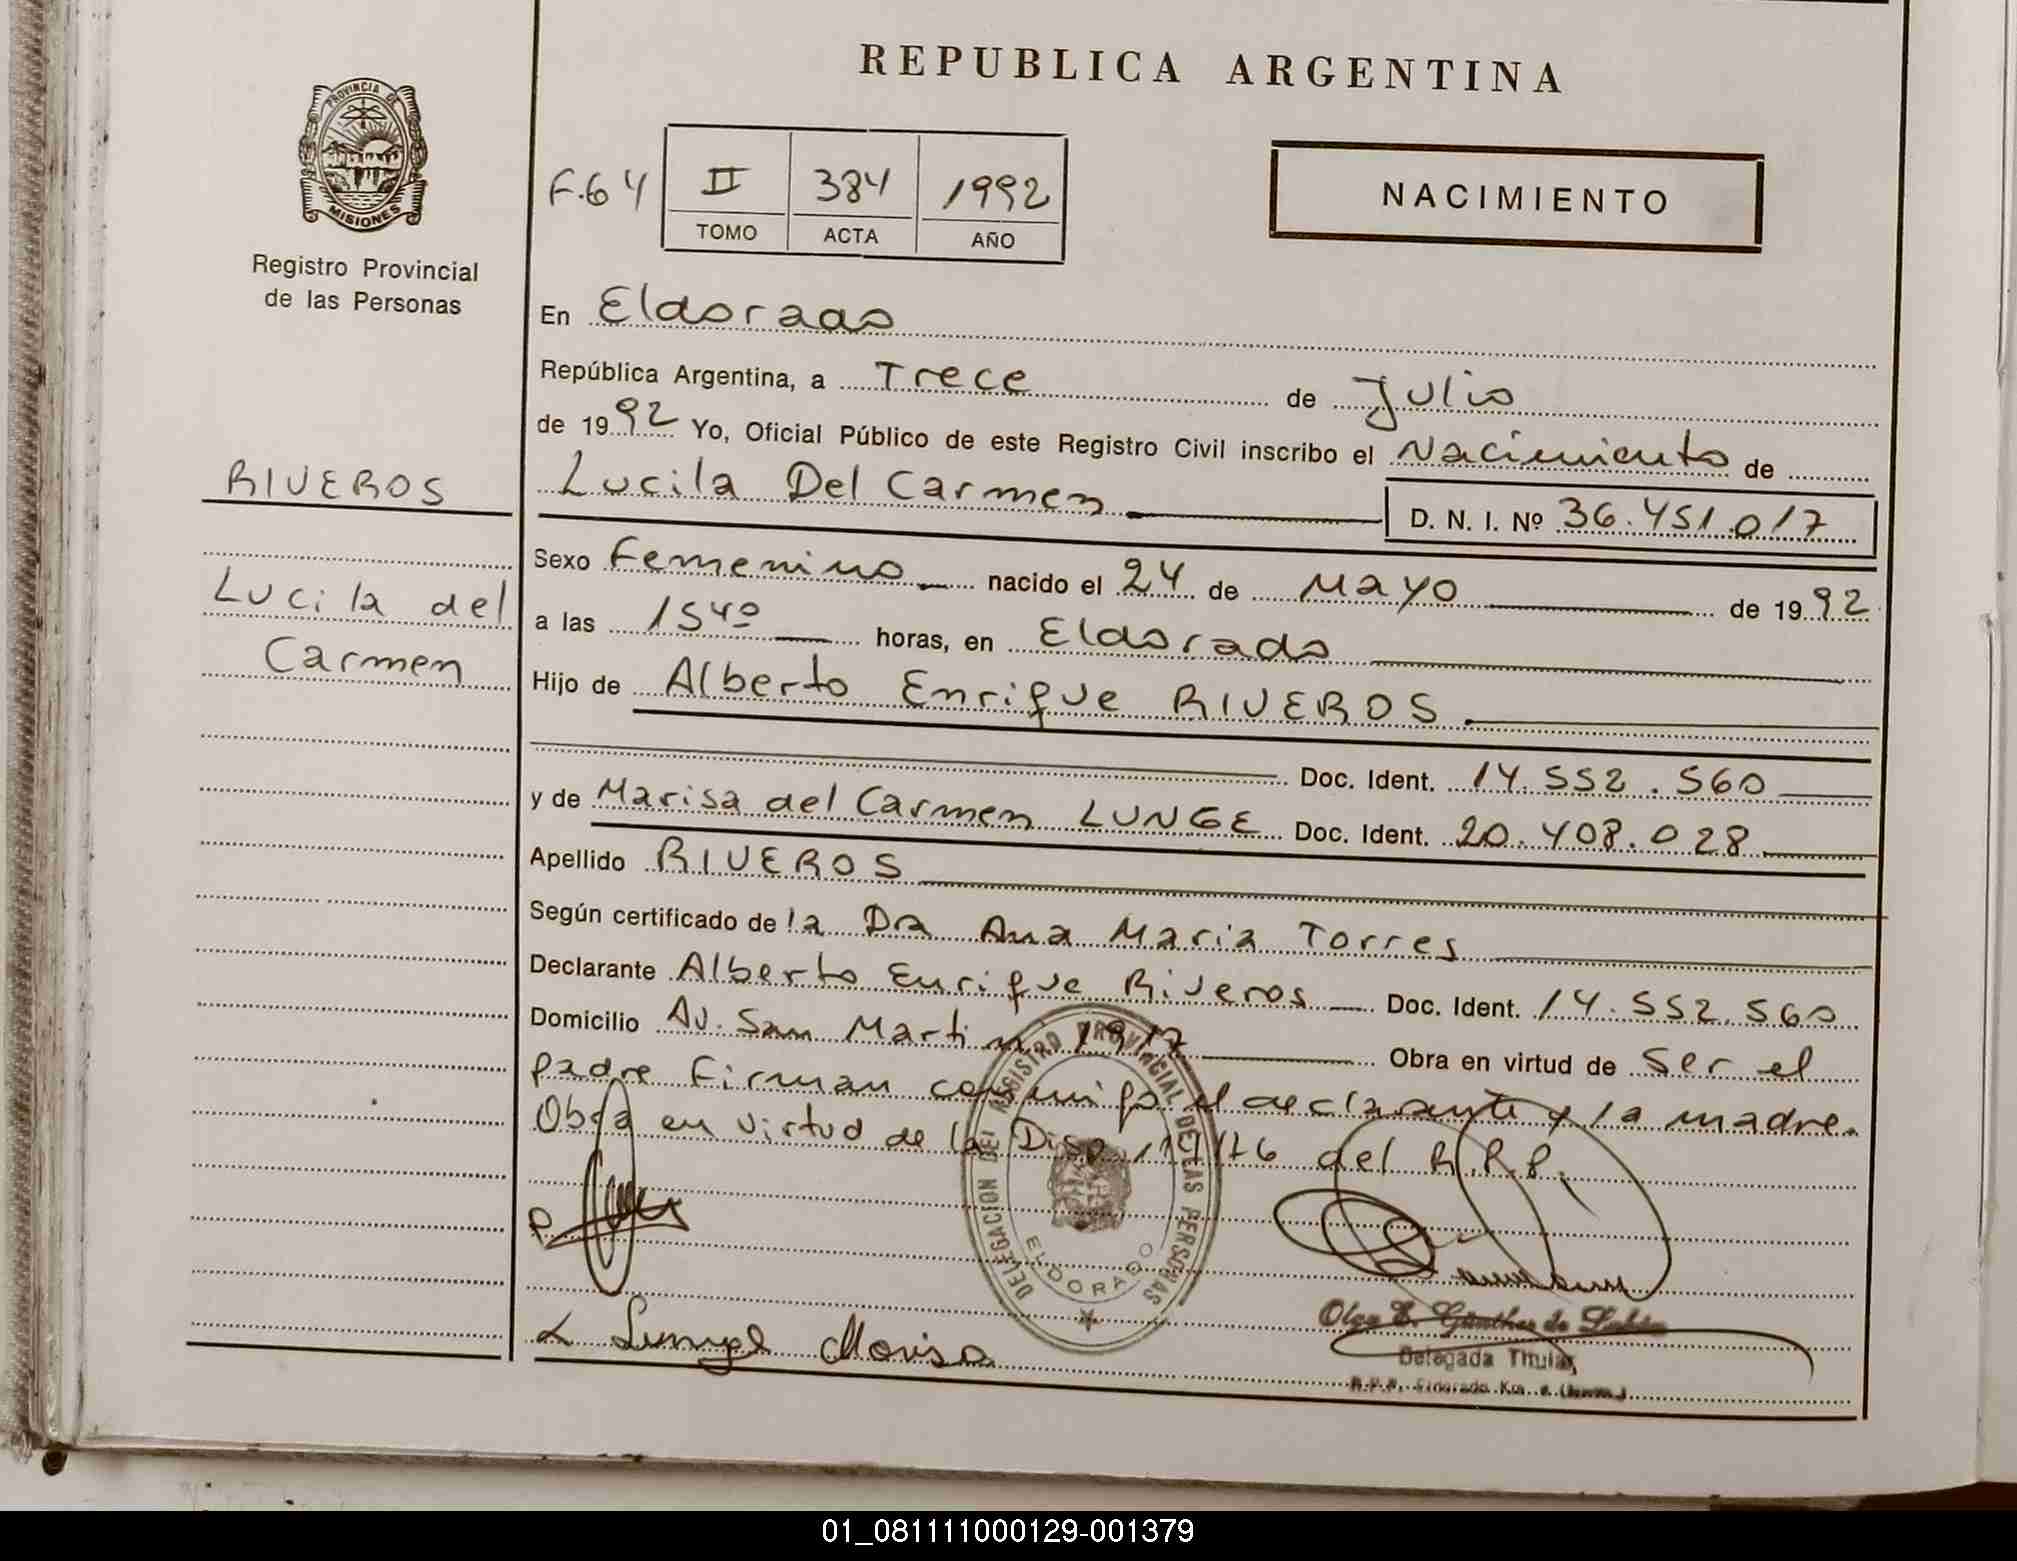 REPUBLICA ARGENTINA
PROVINCIA DE
MISIONES
Registro Provincial
de las Personas
F.64
II 384 1992
TOMO ACTA AÑO
NACIMIENTO
En Eldorado
República Argentina, a Trece de Julio
de 1992 Yo, Oficial Público de este Registro Civil inscribo el Nacimiento de
RIVEROS
Lucila Del Carmen D. N. I. Nº 36.451.017
Sexo Femenino nacido el 24 de Mayo de 1992
Lucila del
Carmen
a las 15⁴⁰ horas, en Eldorado
Hijo de Alberto Enrique RIVEROS
Doc. Ident. 14.552.560
y de Marisa del Carmen LUNGE Doc. Ident. 20.408.028
Apellido RIVEROS
Según certificado de la DRA Ana Maria Torres
Declarante Alberto Enrique Riveros Doc. Ident. 14.552.560
Domicilio Av. San Martin 1917 Obra en virtud de Ser el
Padre Firman conmigo el declarante y la madre.
Obra en virtud de la Disp 117/76 del R.R.P.
DELEGACION DEL REGISTRO PROVINCIAL DE LAS PERSONAS
ELDORADO
Lunge Marisa
Olga E. Günther de
Delegada Titular
R.P.P. Eldorado Km.
01_081111000129-001379